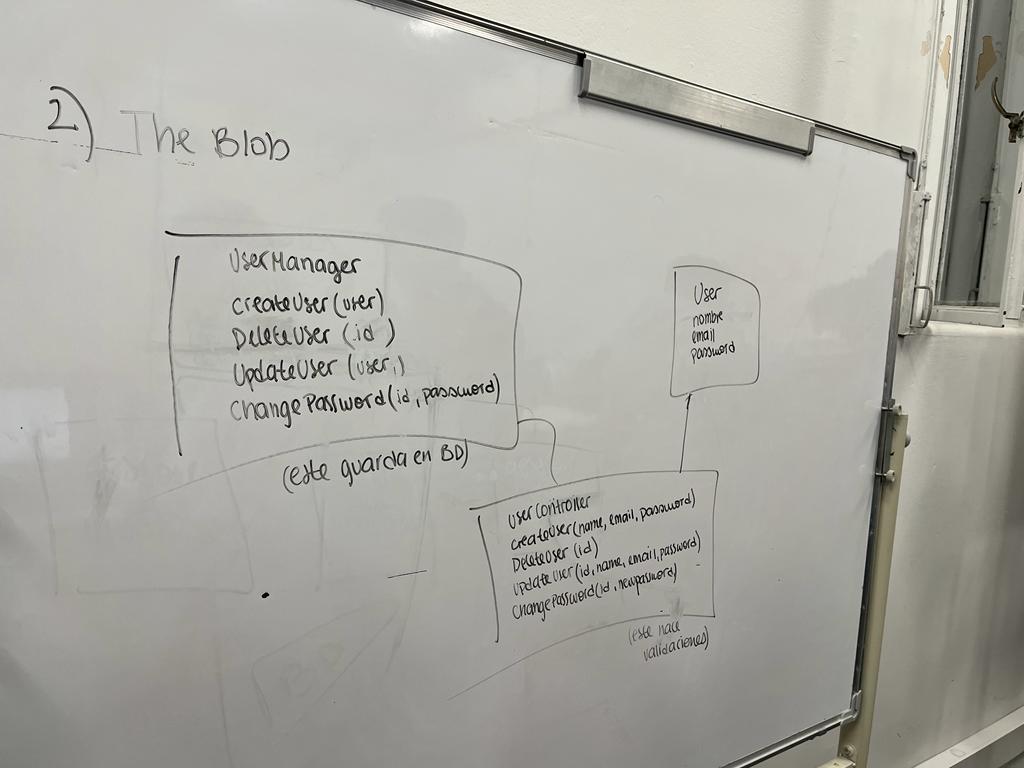 2) The Blob
UserManager
createUser (user)
DeleteUser (id)
UpdateUser (user,)
changePassword (id, password)
(este guarda en BD)
User
nombre
email
password
userController
createUser (name, email, password)
DeleteUser (id)
UpdateUser (id, name, email, password)
changePassword (id, newpassword)
(este hace
validaciones)